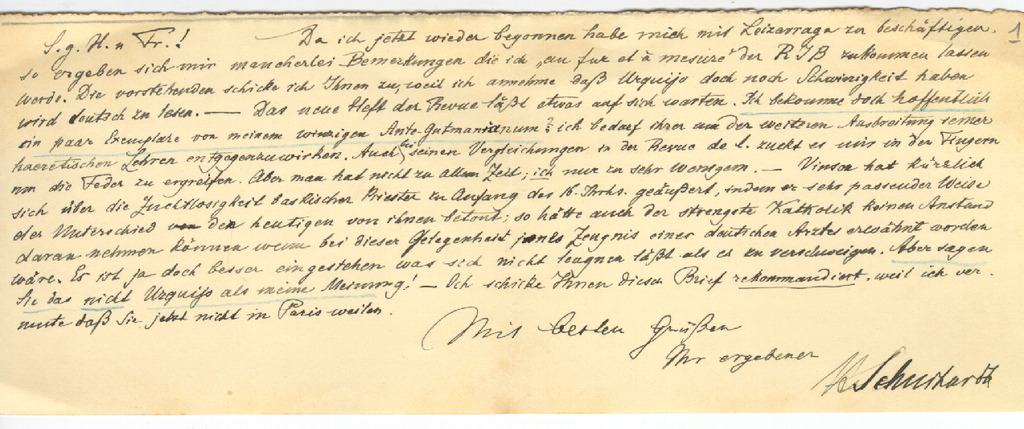 S. g. H. u. Fr.! Da ich jetzt wieder begonnen habe mich mit Leizarraga zu beschäftigen, 1
so ergeben sich mir mancherlei Bemerkungen die ich „au fur et à mesure" der RIB zukommen lassen
werde. Die vorstehenden schicke ich Ihnen zu, weil ich annehme daß Urquijo doch noch Schwierigkeit haben
wird deutsch zu lesen. — Das neue Heft der Revue läßt etwas auf sich warten. Ich bekomme doch hoffentlich
ein paar Exemplare von meinem winzigen Ante-Gutmanianum? ich bedarf ihrer um der weiteren Ausbreitung seiner
haeretischen Lehren entgegenzuwirken. Auch bei seinen Vergleichungen in der Revue de l. zuckt es mir in den Fingern
um die Feder zu ergreifen. Aber man hat nicht zu allem Zeit; ich nur zu sehr wenigem. — Vinson hat kürzlich
sich über die Zuchtlosigkeit baskischer Priester zu Anfang des 16. Jhrhs. geäußert, indem er sehr passender Weise
den Unterschied von den heutigen von ihnen betont; so hätte auch der strengste Katholik keinen Anstand
daran nehmen können wenn bei dieser Gelegenheit jenes Zeugnis eines deutschen Arztes erwähnt worden
wäre. Es ist ja doch besser eingestehen was sich nicht leugnen läßt als es zu verschweigen. Aber sagen
Sie das nicht Urquijo als meine Meinung. — Ich schicke Ihnen diesen Brief rekommandiert, weil ich ver-
mute daß Sie jetzt nicht in Paris weilen.
Mit besten Grüßen
Ihr ergebener
H Schuchardt